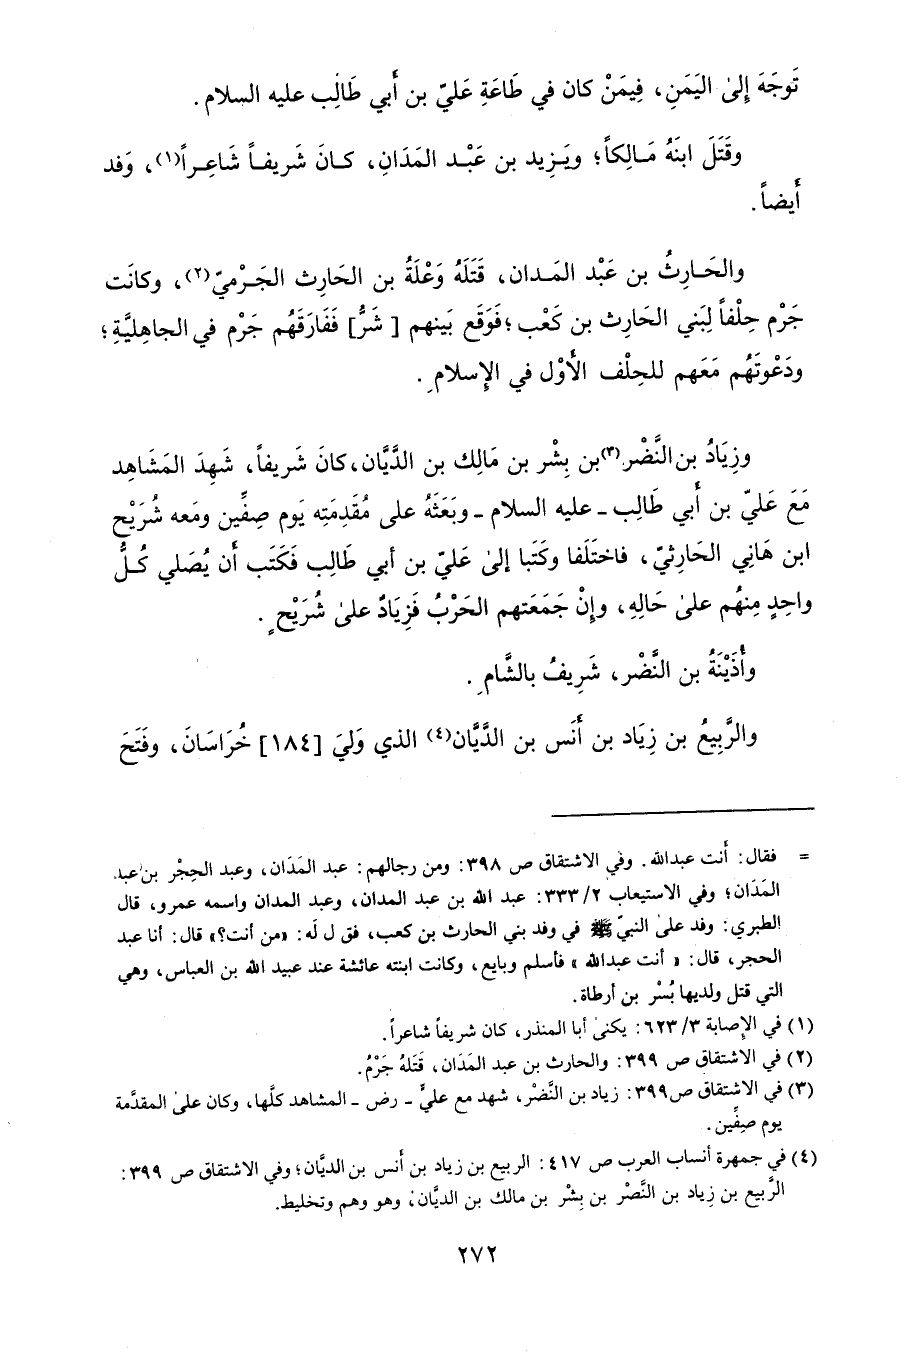 تَوجَهَ إلىٰ اليَمَنِ، فِيمَنْ كان في طَاعَةِ عَليّ بن أَبي طَالِب عليه السلام.
وقَتَلَ ابنَهُ مَـالِكاً؛ ويَـزِيد بن عَبْـد المَدَانِ، كـانَ شَريفـاً شَاعِـراً(١)، وَفد
أَيضاً.
والحَـارِثُ بن عَبْد المَـدان، قَتَلَهُ وَعْلَةُ بن الحَارِث الجَـرْميّ(٢)، وكانَت
جَرْم حِلْفاً لِبَني الحَارِث بن كَعْب؛ فَوَقَع بَينهم [ شَرٌّ] فَفَارَقَهُم جَرْم في الجاهِليَّةِ؛
ودَعْوتَهُم مَعَهم للحِلْف الأَوْل في الإِسلامِ.
وزِيَادُ بن النَّضْر(٣) بن بِشْر بن مَالِك بن الدَّيَّان، كانَ شَريفاً، شَهِدَ المَشَاهِد
مَعَ عَليّ بن أَبي طَالِب ـ عليه السلام ـ وبَعَثَهُ على مُقَدِمَتِه يَوم صِفِّين ومَعه شُرَيْح
ابن هَانِي الحَارثيّ، فاختَلَفا وكَتَبا إلىٰ عَليّ بن أبي طالِب فَكَتَب أن يُصَلي كُـلُّ
واحِدٍ مِنهُم علىٰ حَالِهِ، وإنْ جَمَعَتهم الحَرْبُ فَزِيَادٌ علىٰ شُرَيْحٍ.
وأُذَيْنَةُ بن النَّضْر، شَرِيفُ بالشَّامِ.
والرَّبِيعُ بن زِيَاد بن أَنَس بن الدَّيَّان(٤) الذي وَليَ [١٨٤] خُرَاسَانَ، وفَتَحَ
= فقال: أَنت عبدالله. وفي الاشتقاق ص ٣٩٨: ومن رجالهم: عبد المَدَان، وعبد الحِجْر بن عبد
المَدَان؛ وفي الاستيعاب ٢/ ٣٣٣: عبد الله بن عبد المدان، وعبد المدان واسمه عمرو، قال
الطبري: وفد علىٰ النبيّ ﷺ في وفد بني الحارث بن كعب، فق ل لَه: «من أنت؟» قال: أنا عبد
الحجر، قال: « أنت عبدالله » فأسلم وبايع، وكانت ابنته عائشة عند عبيد الله بن العباس، وهي
التي قتل ولديها بُسْر بن أرطاة.
(١) في الإِصابة ٣/ ٦٢٣: يكنىٰ أبا المنذر، كان شريفاً شاعراً.
(٢) في الاشتقاق ص ٣٩٩: والحارث بن عبد المَدَان، قَتَلهُ جَرْمُ.
(٣) في الاشتقاق ص٣٩٩: زياد بن النَّضْر، شهد مع عليٍّ ـ رض ـ المشاهد كلَّها، وكان علىٰ المقدَّمة
يوم صِفِّين.
(٤) في جمهرة أنساب العرب ص ٤١٧: الربيع بن زياد بن أَنس بن الديَّان؛ وفي الاشتقاق ص ٣٩٩:
الرَّبيع بن زِياد بن النَّصْر بن بِشْر بن مالك بن الديَّان، وهو وهم وتخليط.
٢٧٢